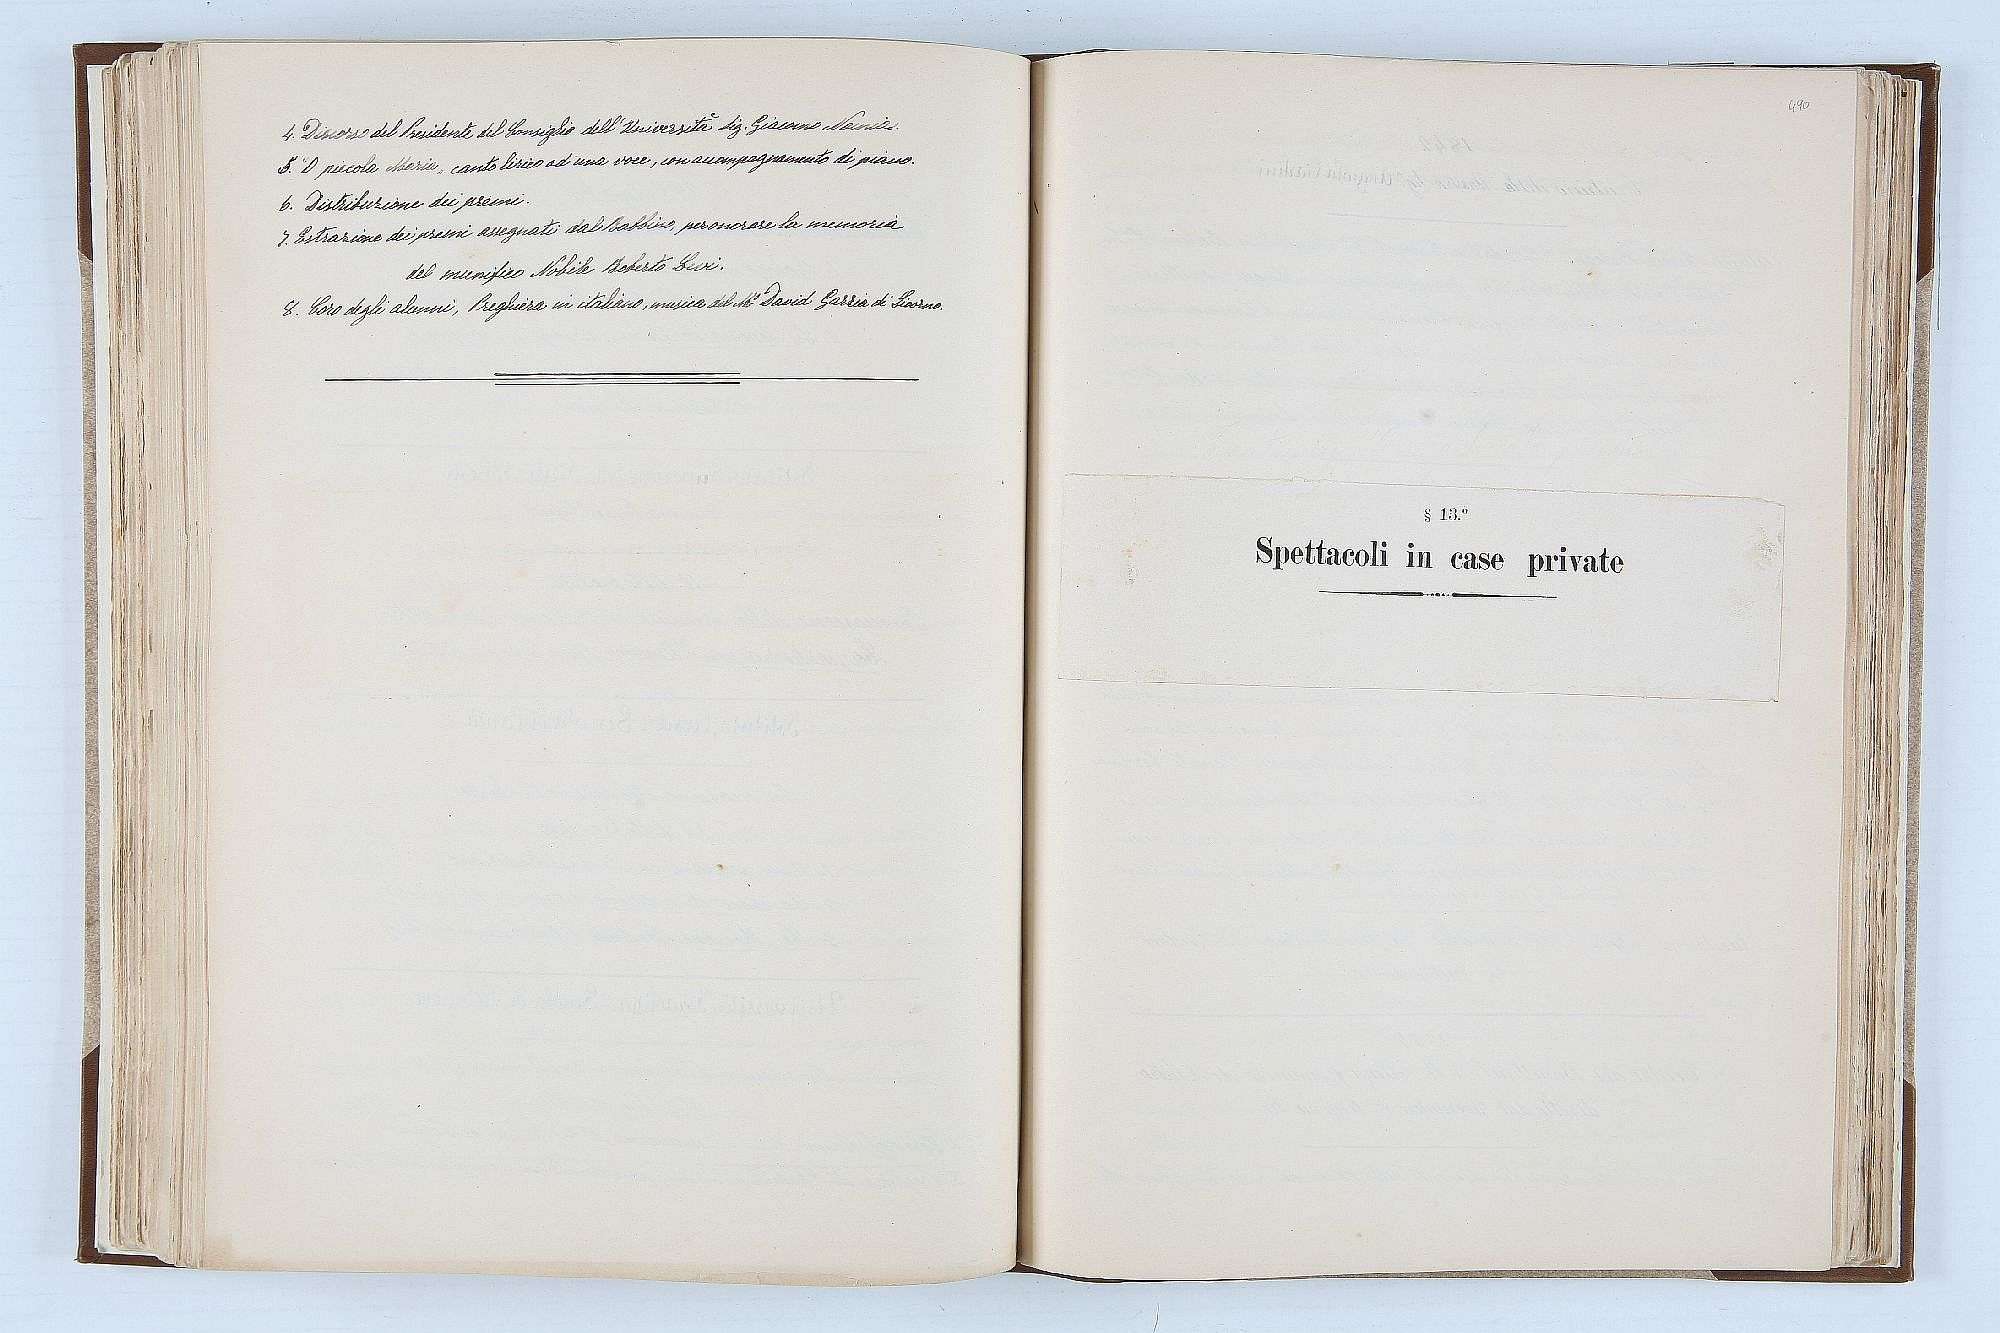 4. Discorso del Presidente del Consiglio dell' Università Sig. Giacomo
5. "O piccola Maria", canto lirico ad una voce, con accompagnamento di piano.
6. Distribuzione dei premi.
7. Estrazione dei premi assegnati dal Rabbino, per onorare la memoria
del munifico Nobile Roberto Levi.
8. Coro degli alunni, Preghiera in italiano, musica del M.º David Garzia di Livorno.
490
§ 13.º
Spettacoli in case private